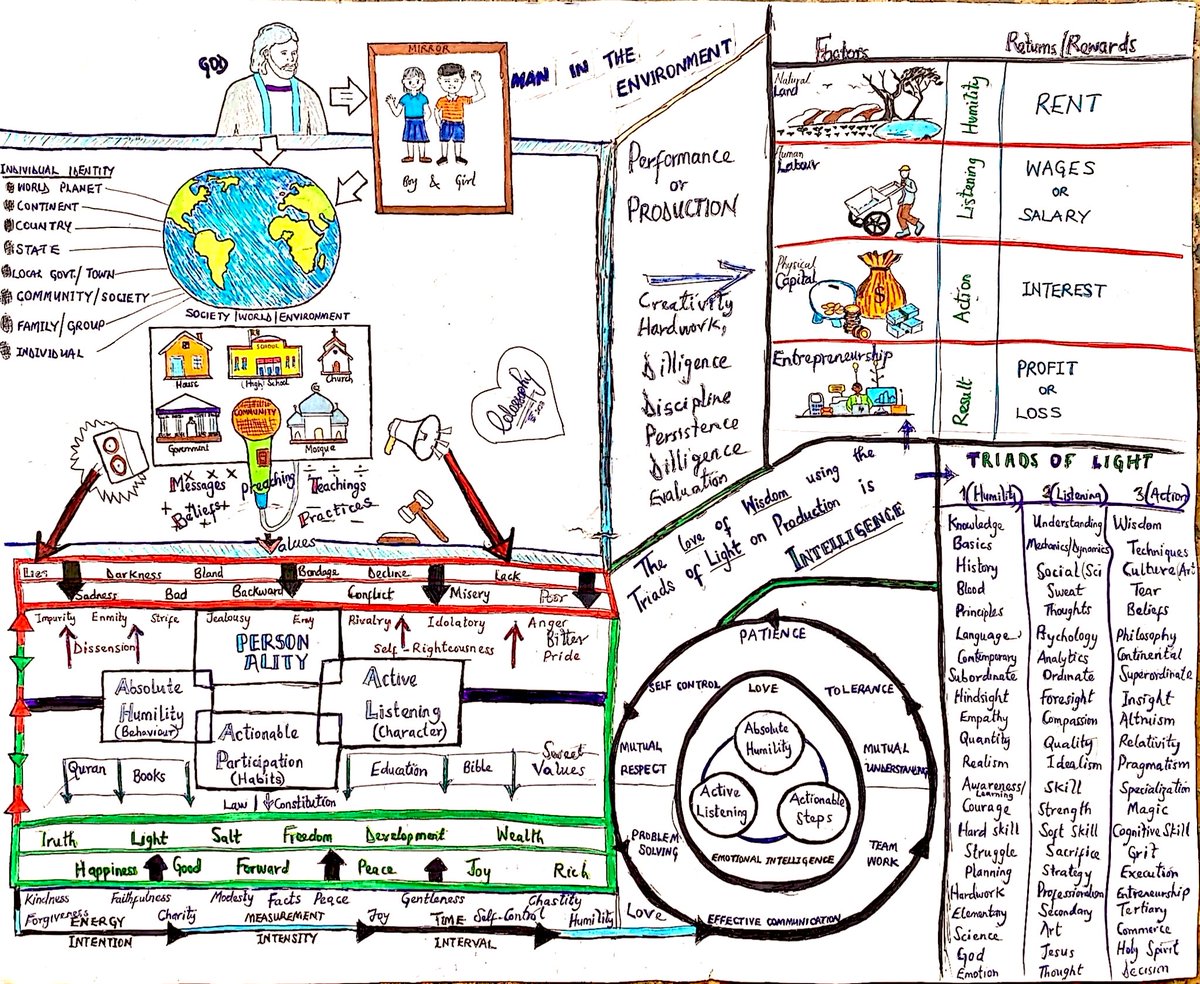 GOD
MIRROR
Boy & Girl
MAN IN THE ENVIRONMENT
INDIVIDUAL IDENTITY
WORLD PLANET
CONTINENT
COUNTRY
STATE
LOCAL GOVT./TOWN
COMMUNITY/SOCIETY
FAMILY/GROUP
INDIVIDUAL
SOCIETY/WORLD/ENVIRONMENT
House
SCHOOL
(High) School
Church
Government
COMMUNITY
Mosque
Messages preaching Teachings
Beliefs Practices
Values
Lies Darkness Bland Bondage Decline Lack
Sadness Bad Backward Conflict Misery Poor
Impurity Enmity Strife Jealousy Envy Rivalry Idolatory Anger
Dissension Self-Righteousness Bitter
Pride
PERSON
ALITY
Absolute
Humility
(Behaviour)
Active
Listening
(Character)
Actionable
Participation
(Habits)
Quran Books Education Bible Sweet
Values
Law Constitution
Truth Light Salt Freedom Development Wealth
Happiness Good Forward Peace Joy Rich
Kindness Faithfulness Modesty Facts Peace Gentleness Chastity
Forgiveness ENERGY Charity MEASUREMENT Joy TIME Self-Control Humility Love
INTENTION INTENSITY INTERVAL
Performance
or
PRODUCTION
Creativity
Hardwork,
Dilligence
Discipline
Persistence
Dilligence
Evaluation
Factors Returns/Rewards
Natural
Land
Humility
RENT
Human
Labour
Listening
WAGES
OR
SALARY
Physical
Capital
Action
$
INTEREST
Entrepreneurship
Result
PROFIT
OR
LOSS
The Love of Wisdom using the
Triads of Light on Production is
INTELLIGENCE
PATIENCE
SELF CONTROL
TOLERANCE
LOVE
Absolute
Humility
MUTUAL
RESPECT
MUTUAL
UNDERSTANDING
Active
Listening
Actionable
Steps
PROBLEM
SOLVING
TEAM
WORK
EMOTIONAL INTELLIGENCE
EFFECTIVE COMMUNICATION
TRIADS OF LIGHT
1(Humility) 2(Listening) 3(Action)
Knowledge Understanding Wisdom
Basics Mechanics/Dynamics Techniques
History Social(Sci Culture(Art
Blood Sweat Tear
Principles Thoughts Beliefs
Language Psychology Philosophy
Contemporary Analytics Continental
Subordinate Ordinate Superordinate
Hindsight Foresight Insight
Empathy Compassion Altruism
Quantity Quality Relativity
Realism Idealism Pragmatism
Awareness/Learning Skill Specialization
Courage Strength Magic
Hard skill Soft Skill Cognitive Skill
Struggle Sacrifice Grit
Planning Strategy Execution
Hardwork Professionalism Entreneurship
Elementary Secondary Tertiary
Science Art Commerce
God Jesus Holy Spirit
Emotion Thought Decision